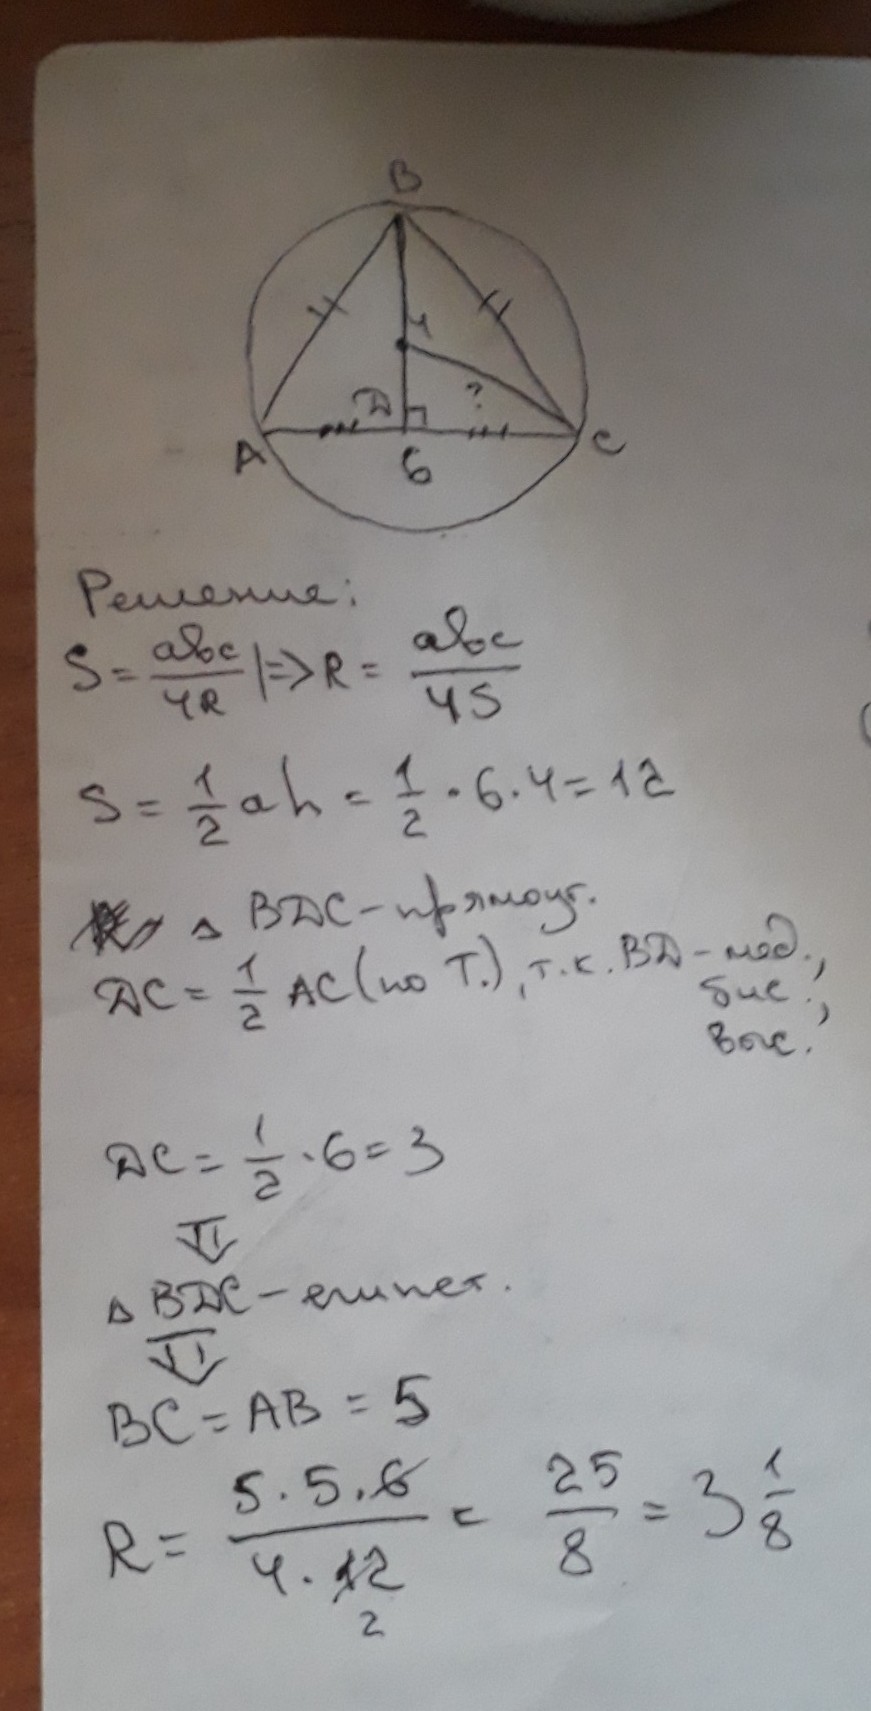 B
4
D
?
A
6
C
Решение:
S = abc/4R |=> R = abc/4S
S = 1/2 ah = 1/2 · 6 · 4 = 12
△ BDC - прямоуг.
DC = 1/2 AC (по Т.), т.к. BD - мед.,
бис.,
выс.
DC = 1/2 · 6 = 3
⇓
△ BDC - египет.
⇓
BC = AB = 5
R = 5 · 5 · 6/4 · 12 = 25/8 = 3 1/8
2